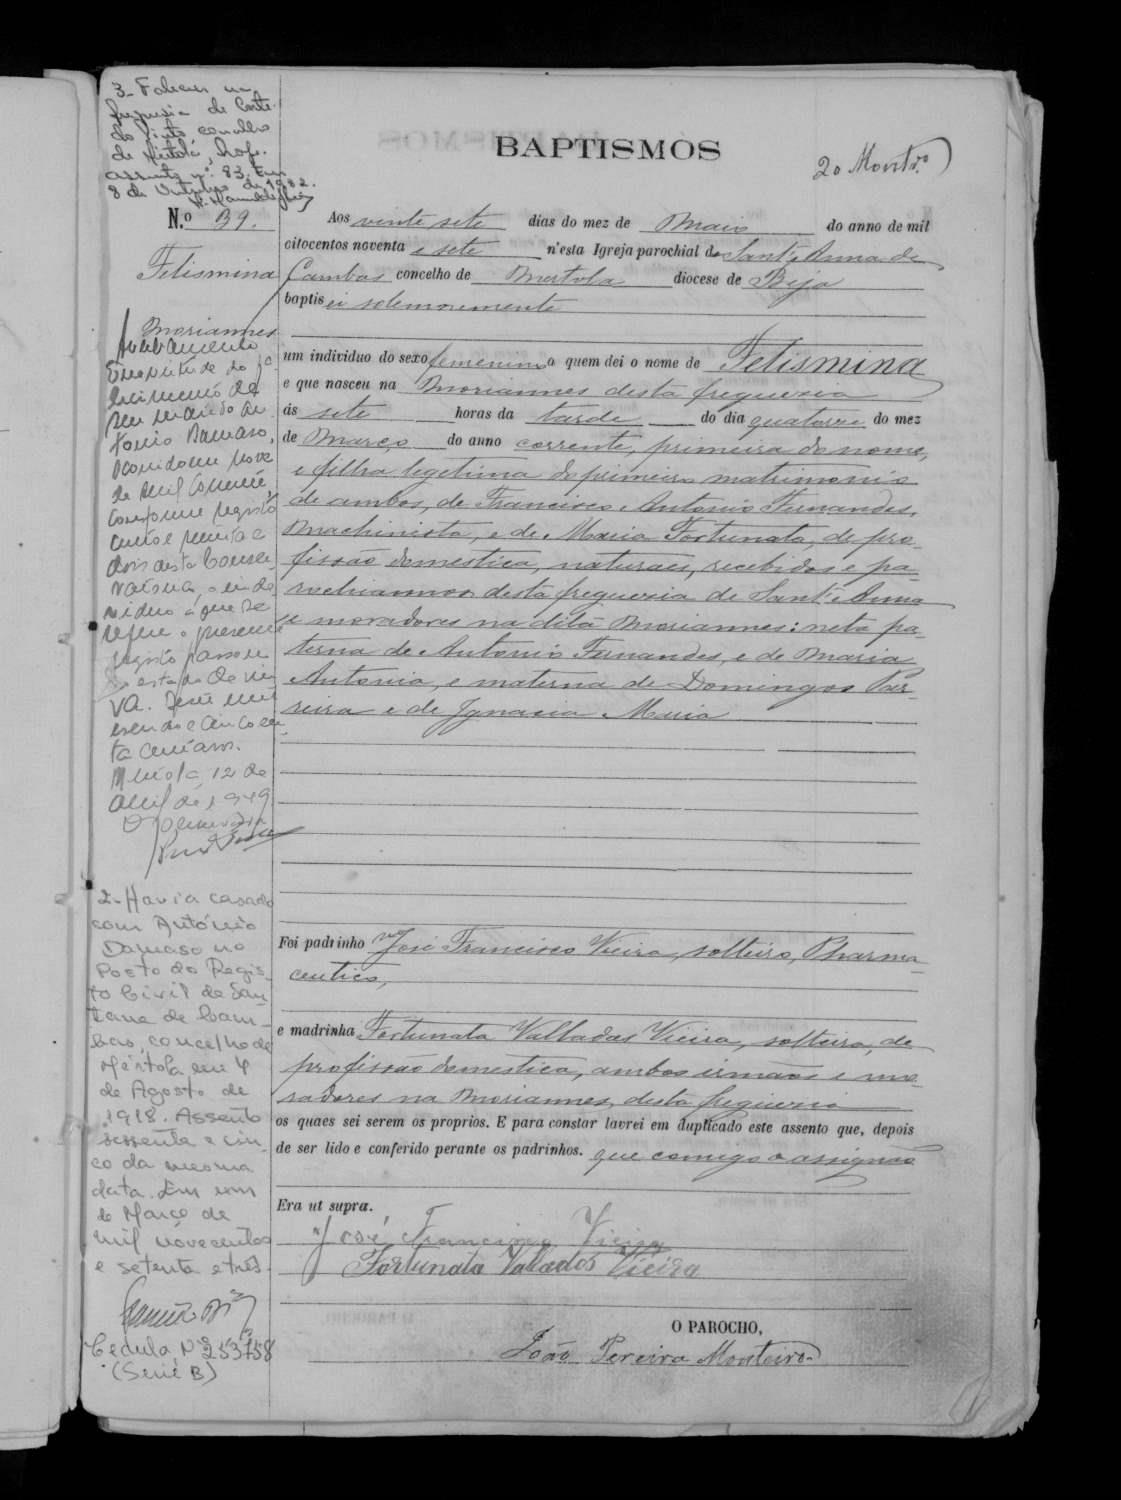 BAPTISMOS
20 Montro.
3- Faleceu na
freguesia de Corte
do Pinto, concelho
de Mértola,
assento nº. 83. Em
8 de Outubro de 1982.
N.º 39.
Felismina
Moriannes
Averbamento
Em virtude do fa-
lecimento de
seu marido An-
tonio Damaso,
ocorrido em nove
de mil
conforme registo
cento e trinta e
dois desta Conser-
vatoria, o indi-
viduo a que se
refere o presente
registo passou
ao estado de viu-
va.
centavos.
Mertola, 12 de
Abril de 1949
2- Havia casado
com António
Damaso no
Posto do Regis-
to Civil de San-
tana de Cam-
bas, concelho de
Mértola em 4
de Agosto de
1918. Assento
sessenta e cin-
co da mesma
data. Em um
de Março de
mil novecentos
e setenta e três.
Cedula Nº 253758
(Serie B)
Aos vinte sete dias do mez de Maio do anno de mil
oitocentos noventa e sete n'esta Igreja parochial de Sant'Anna de
Cambas concelho de Mertola diocese de Beja
baptisei solemnemente
um individuo do sexo femenino a quem dei o nome de Felismina
e que nasceu na Moriannes desta freguezia
ás sete horas da tarde do dia quatorze do mez
de Março do anno corrente, primeira do nome,
e filha legitima do primeiro matrimonio
de ambos, de Francisco Antonio Fernandes,
Machinista, e de Maria Fortunata, de pro-
fissão domestica, naturaes, recebidos e pa-
rochiannos desta freguezia de Sant'Anna
e moradores na dita Moriannes: neta pa-
terna de Antonio Fernandes, e de Maria
Antonia, e materna de Domingos Par-
reira e de Ignacia Maria
Foi padrinho José Francisco Vieira, solteiro, Pharma-
ceutico,
e madrinha Fortunata Valladas Vieira, solteira, de
profissão domestica, ambos irmãos e mo-
radores na Moriannes, desta freguezia
os quaes sei serem os proprios. E para constar lavrei em duplicado este assento que, depois
de ser lido e conferido perante os padrinhos. que comigo o assignão
Era ut supra.
José Francisco Vieira
Fortunata Valladas Vieira
O PAROCHO,
João Pereira Monteiro